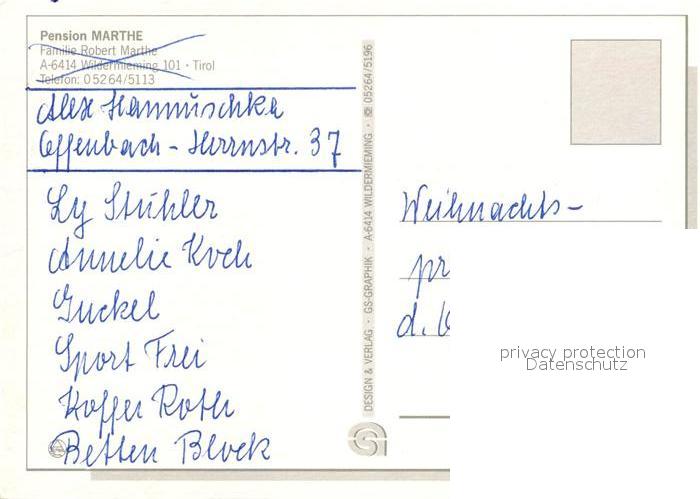 Pension MARTHE
Familie Robert Marthe
A-6414 Wildermieming 101 · Tirol
Telefon: 0 52 64/5113
Alex Hannuschka
Offenbach - Herrnstr. 37
Ly Stühler
Annelie Koch
Guckel
Sport Frei
Koffer Roth
Betten Block
DESIGN & VERLAG · GS-GRAPHIK · A-6414 WILDERMIEMING · ☎ 05264/5196
Weihnachts-
pr
d.
privacy protection
Datenschutz